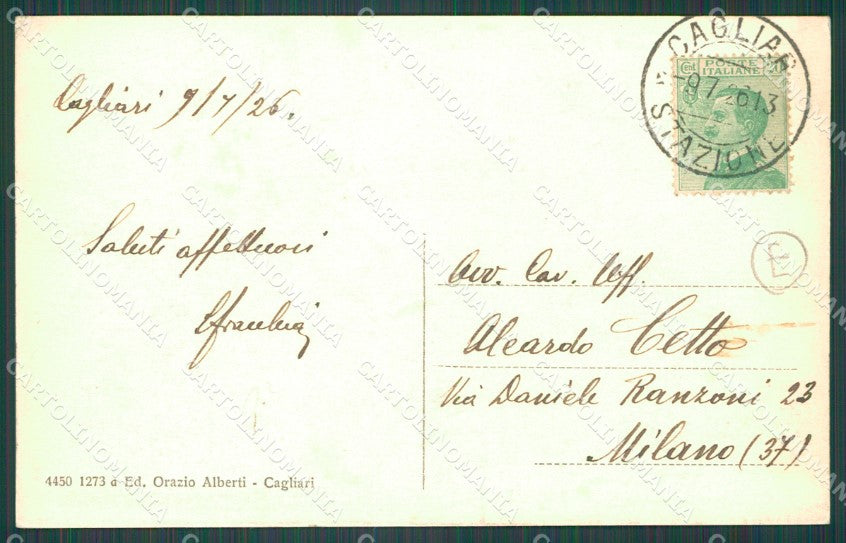 CAGLIARI
-9 7 26 13
STAZIONE
POSTE
ITALIANE
Cagliari 9/7/26.
Saluti affettuosi
Avv. Cav. Uff.
Aleardo Cetto
Via Daniele Ranzoni 23
Milano (37)
4450 1273 a Ed. Orazio Alberti - Cagliari
CARTOLINOMANIA